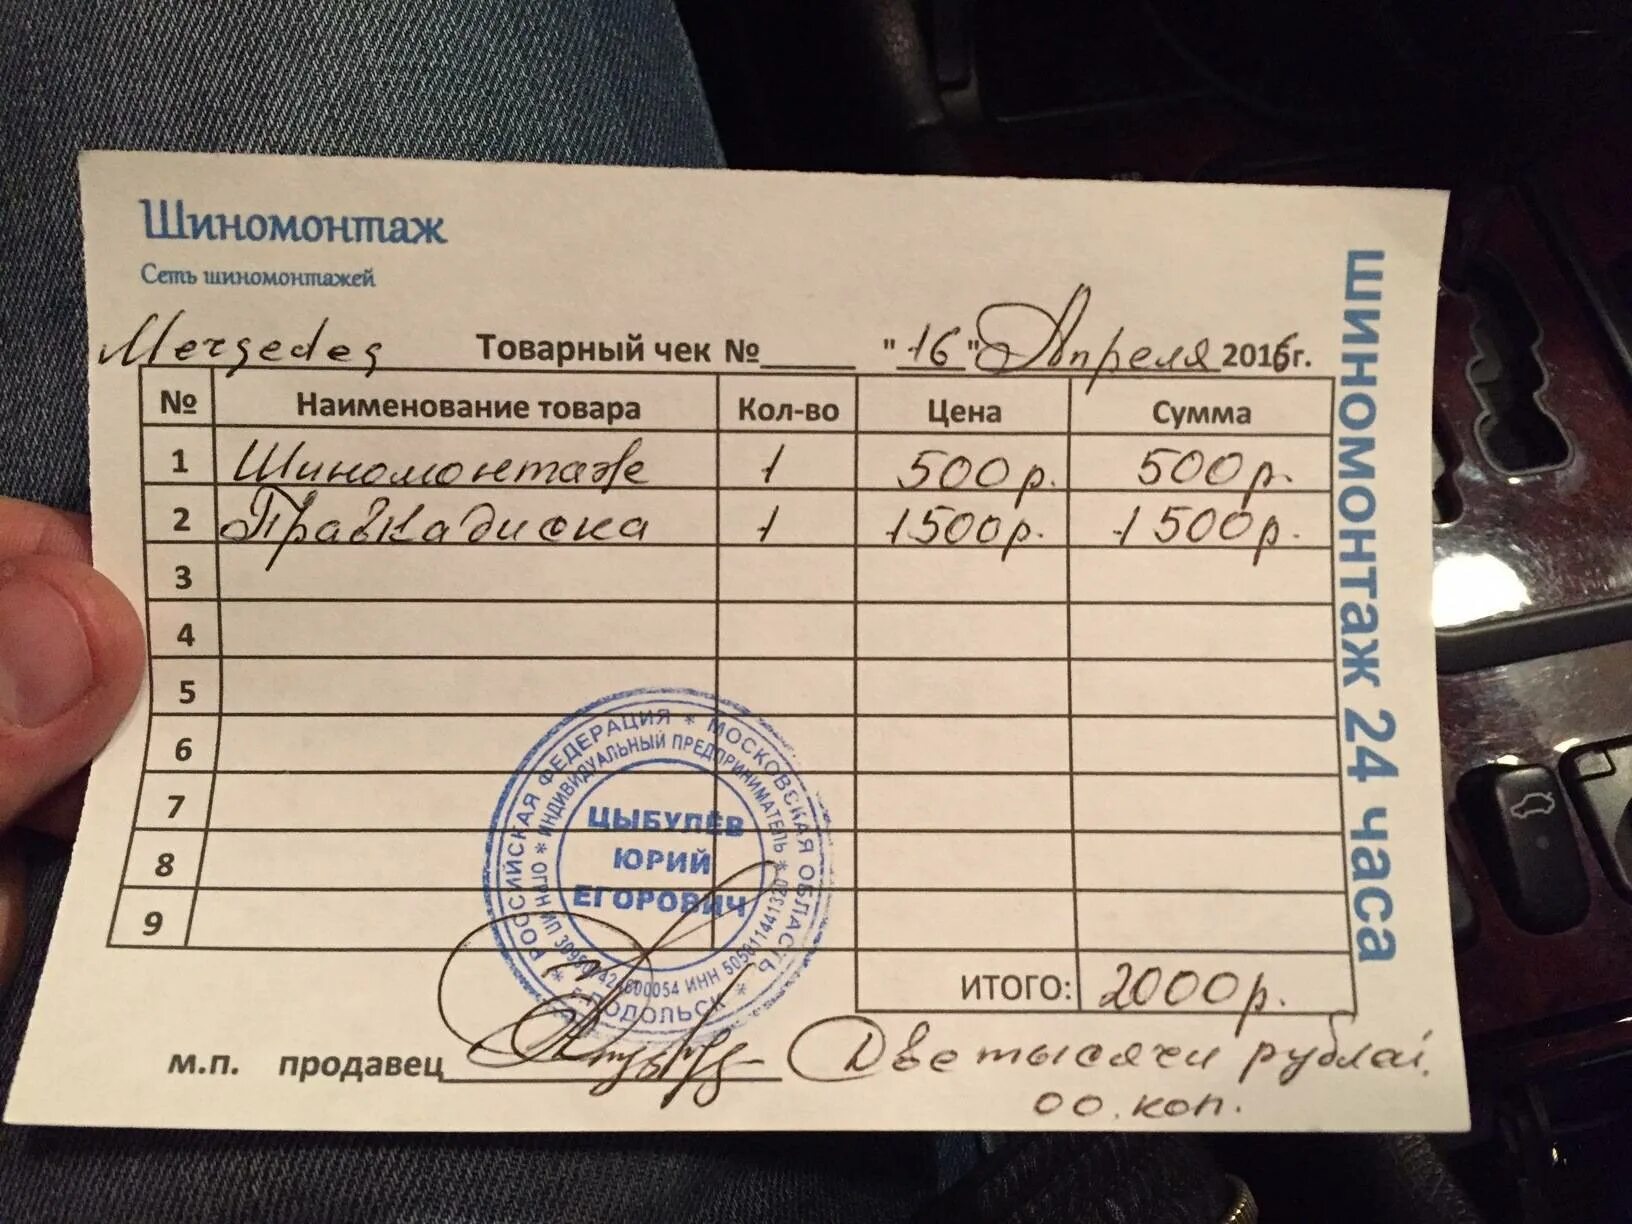 Шиномонтаж
Сеть шиномонтажей
Mersedes Товарный чек №_____ "16" Апреля 2016г.
№ Наименование товара Кол-во Цена Сумма
1 Шиномонтаж 1 500р. 500р.
2 Правка диска 1 1500р. 1500р.
3
4
5
6
7
8
9
ИТОГО: 2000р.
м.п. продавец
Две тысячи рублей.
00.коп.
ШИНОМОНТАЖ 24 часа
РОССИЙСКАЯ ФЕДЕРАЦИЯ * МОСКОВСКАЯ ОБЛАСТЬ * Г.ПОДОЛЬСК *
ИНДИВИДУАЛЬНЫЙ ПРЕДПРИНИМАТЕЛЬ * ИНН * ОГРН ИП
ЦЫБУЛЁВ
ЮРИЙ
ЕГОРОВИЧ